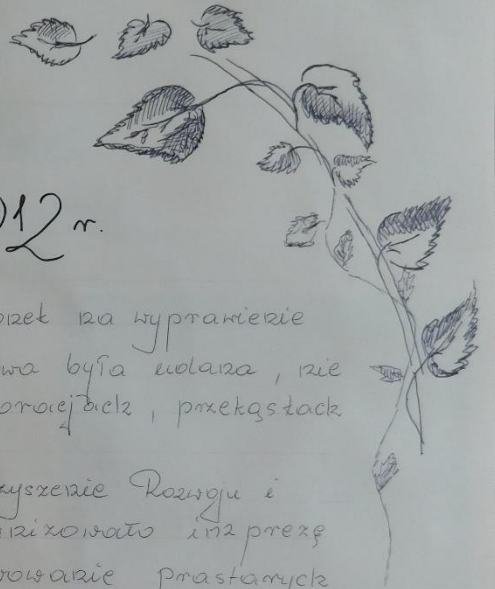 012 r.
orzeł na wyprawienie
wa była udana, nie
przekąskach
zyszenie Rozwoju i
nizowało imprezę
rowanie prastarych